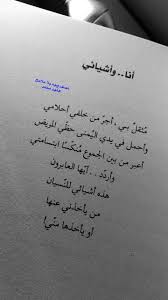 أنا .. وأشيائي
مُثقل بي، أجرّ من خلفي أحلامي
وأحمل في يدي اليُمنى حظّي المريض
أعبر من بين الجموع مُنكّسًا ابتسامتي
وأردّد .. أيّها العابرون
هذه أشيائي للنّسيان
من يأخذني عنها
أو يأخذها منّي!